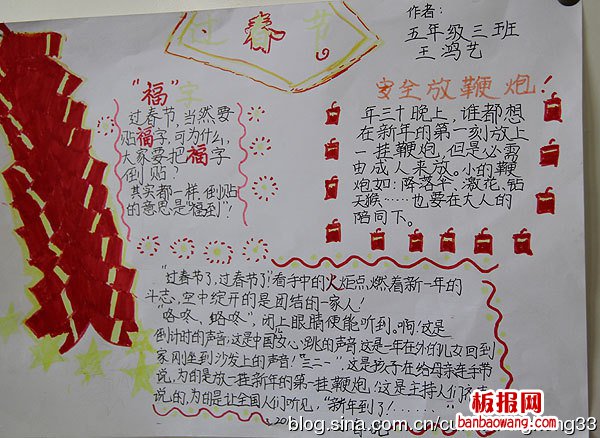 过春节
作者：
五年级三班
王鸿艺
"福"字
过春节，当然要
贴福字，可为什么，
大家要把福字
倒贴？
其实都一样，倒贴
的意思是"福到"！
安全放鞭炮！
年三十晚上，谁都想
在新年的第一刻放上
一挂鞭炮，但是必需
由成人来放。小的鞭
炮如：降落伞、激花、钻
天猴……也要在大人的
陪同下。
"过春节了，过春节了"看手中的火炬点燃着新一年的
斗志，空中绽开的是团结的一家人！
"咯咚、咯咚"，闭上眼睛便能听到。啊！这是
倒计时的声音，这是中国心跳的声音，这是一年在外的儿女回到
家，刚坐到沙发上的声音！"三二一"，这是孩子在给母亲
说，为的是放一挂新年的第一挂鞭炮！这是主持人们
说的，为的是让全国人们听见，"新年到了！………"
板报网
banbaowang.com
blog.sina.com.cn